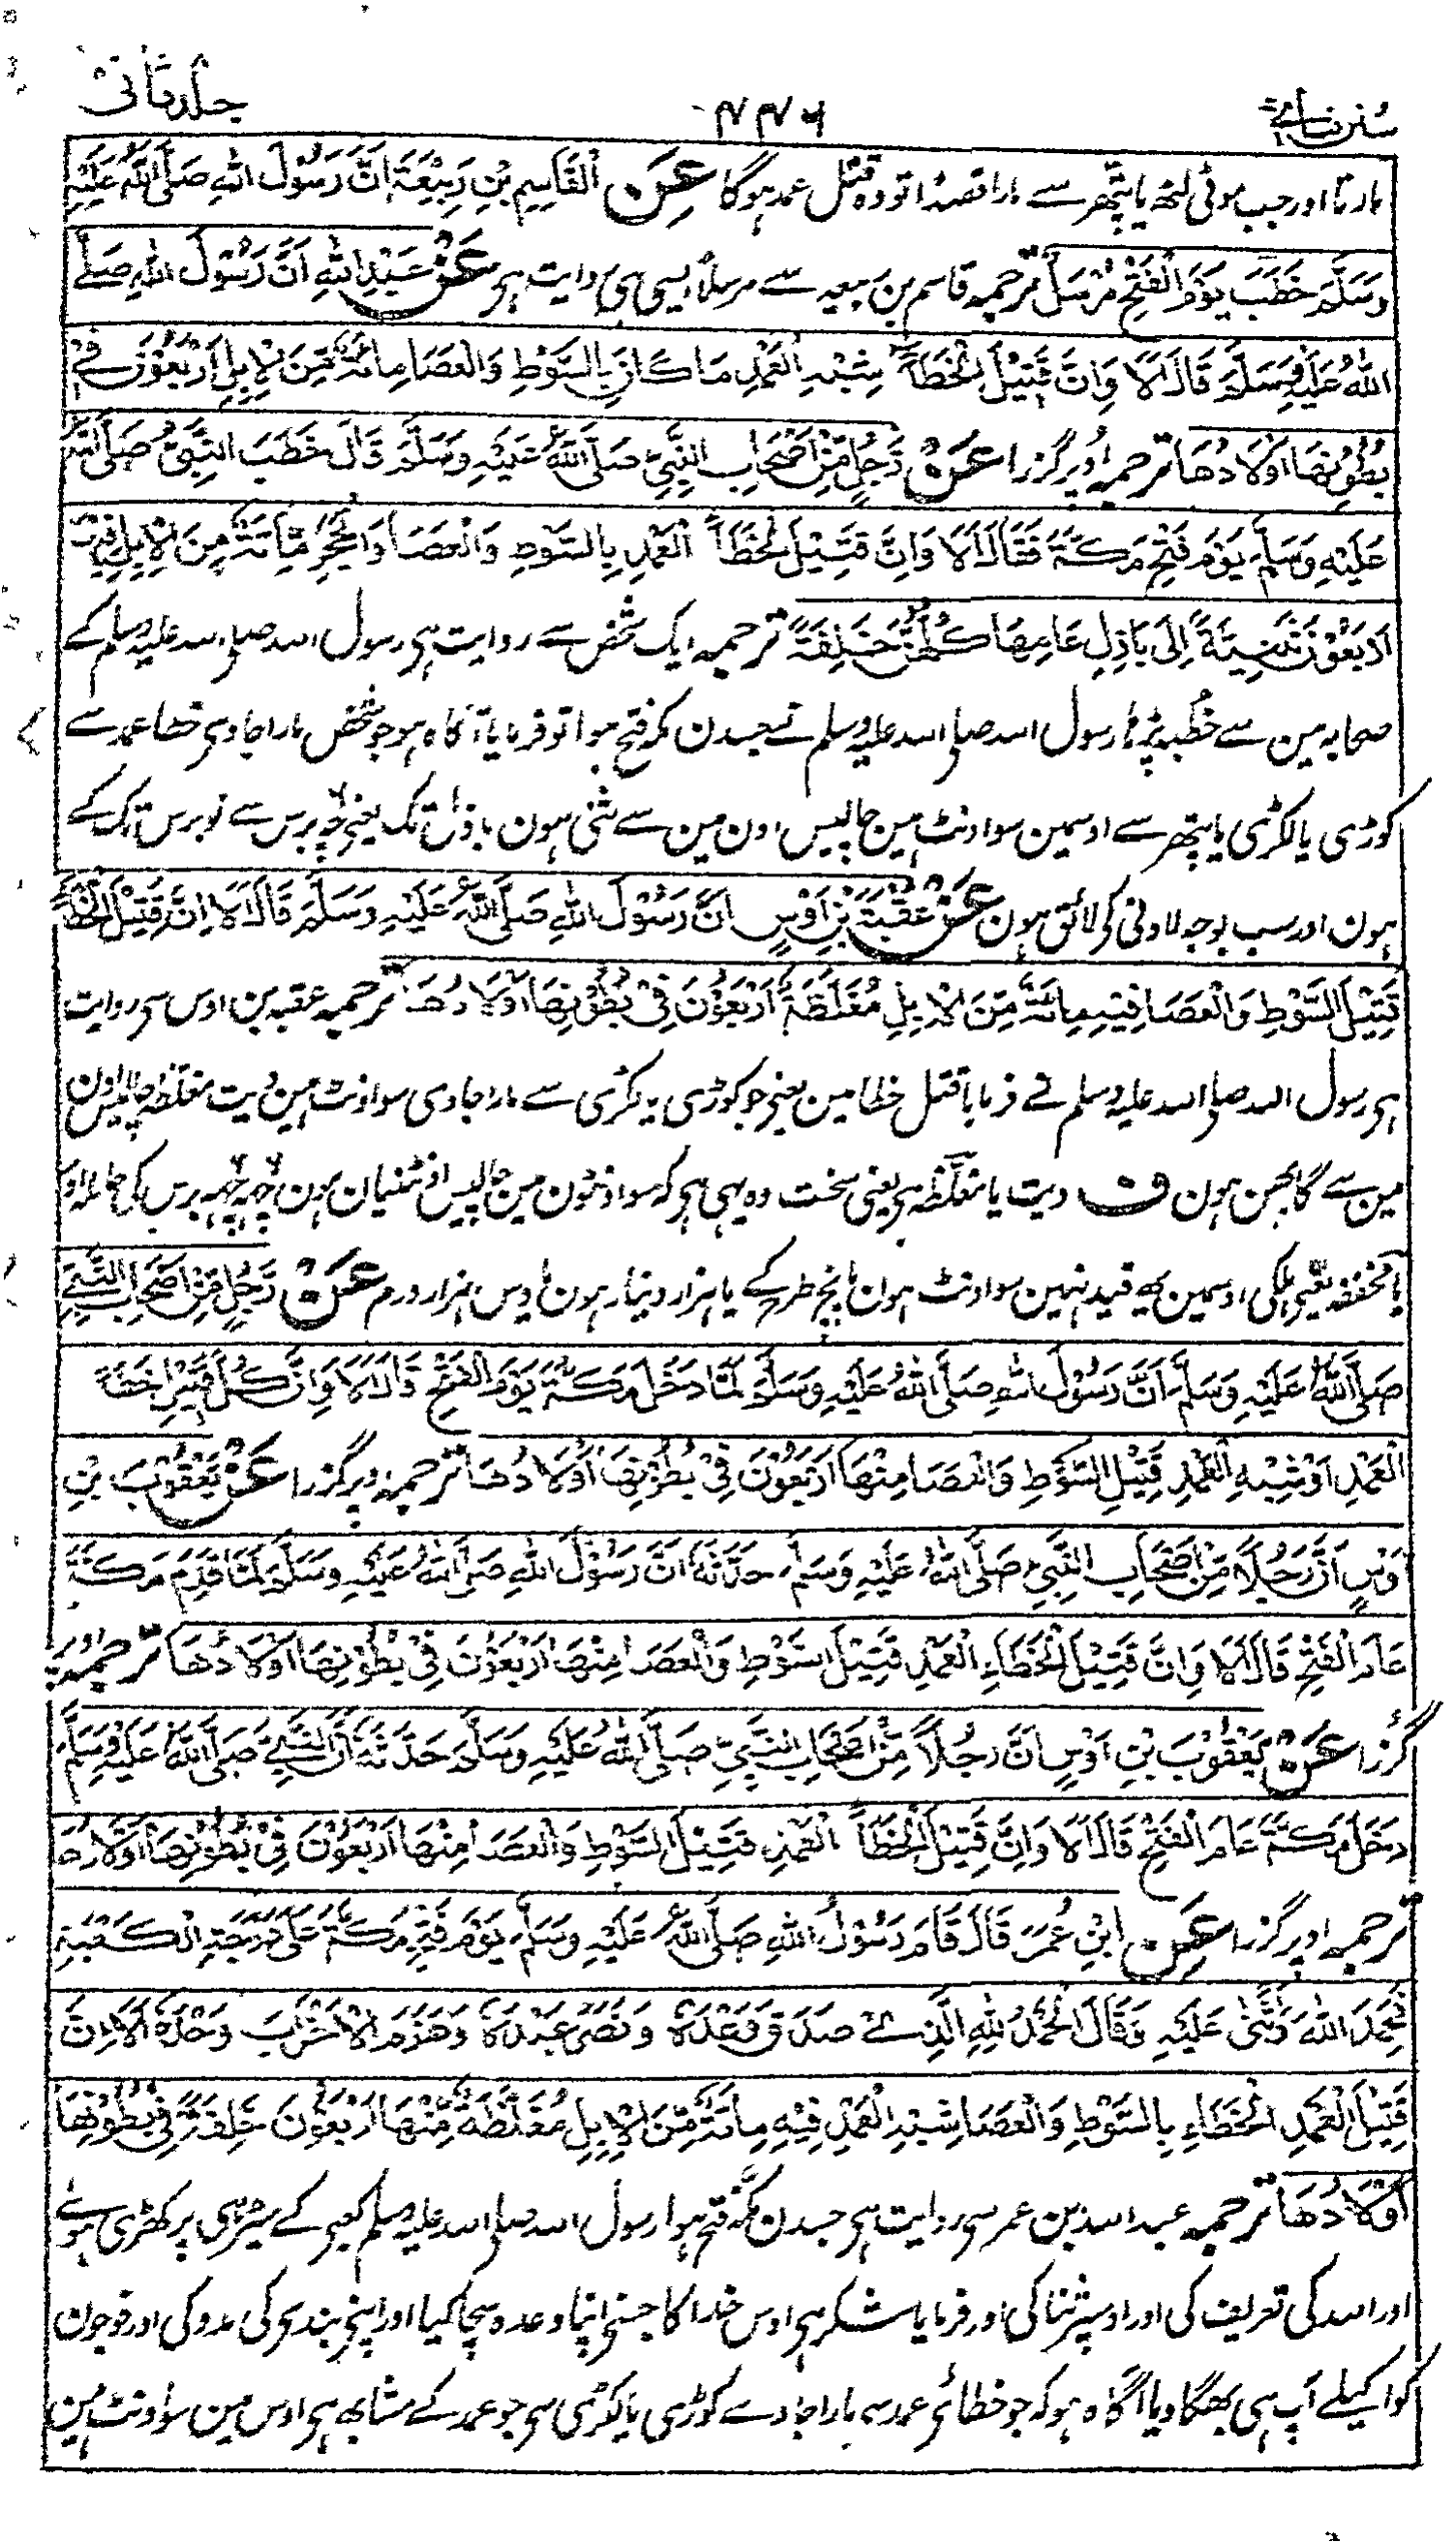 سنن نسائے
۴۴۶
جلد ثانی
مارتا اور جب موٹی لٹھ یا پتھر سے مارا قصدًا تو وہ قتل عمد ہوگا عَنِ الْقَاسِمِ بْنِ رَبِيْعَةَ اَنَّ رَسُوْلَ اللهِ صَلَّى اللهُ عَلَيْهِ
وَسَلَّمَ خَطَبَ يَوْمَ الْفَتْحِ مُرْسَلٌ ترجمہ قاسم بن ربیعہ سے مرسلًا ایسی ہی روایت ہی عَنْ عَبْدِ اللهِ اَنَّ رَسُوْلَ اللهِ صَلَّے
اللهُ عَلَيْهِ وَسَلَّمَ قَالَ اَلَا وَاِنَّ قَتِيْلَ الْخَطَأِ شِبْهِ الْعَمْدِ مَا كَانَ بِالسَّوْطِ وَالْعَصَا مِائَةٌ مِّنَ الْاِبِلِ اَرْبَعُوْنَ فِيْ
بُطُوْنِهَا اَوْلَادُهَا ترجمہ اوپر گزرا عَنْ رَجُلٍ مِّنْ اَصْحَابِ النَّبِيِّ صَلَّى اللهُ عَلَيْهِ وَسَلَّمَ قَالَ خَطَبَ النَّبِيُّ صَلَّى اللهُ
عَلَيْهِ وَسَلَّمَ يَوْمَ فَتْحِ مَكَّةَ فَقَالَ اَلَا وَاِنَّ قَتِيْلَ الْخَطَأِ الْعَمْدِ بِالسَّوْطِ وَالْعَصَا وَالْحَجَرِ مِائَةٌ مِّنَ الْاِبِلِ فِيْهَا
اَرْبَعُوْنَ ثَنِيَّةً اِلٰى بَاذِلِ عَامِهَا كُلُّهُنَّ خَلِفَةٌ ترجمہ ایک شخص سے روایت ہی رسول اللہ صلی اللہ علیہ وسلم کے
صحابہ مین سے خطبہ پڑہا رسول اللہ صلی اللہ علیہ وسلم نے جسدن مکہ فتح ہوا تو فرمایا آگاہ ہو جو شخص مارا جاوی خطا عمد سے
کوڑی یا لکڑی یا پتھر سے اوسمین سو اونٹ ہین چالیس اون مین سے ثنی ہون باذل تک یعنی چھ برس سے نو برس تک کے
ہون اور سب بوجہ لادنی کی لائق ہون عَنْ عُقْبَةَ بْنِ اَوْسٍ اَنَّ رَسُوْلَ اللهِ صَلَّى اللهُ عَلَيْهِ وَسَلَّمَ قَالَ اَلَا اِنَّ قَتِيْلَ الْخَطَأِ
قَتِيْلَ السَّوْطِ وَالْعَصَا فِيْهِ مِائَةٌ مِّنَ الْاِبِلِ مُغَلَّظَةٌ اَرْبَعُوْنَ فِيْ بُطُوْنِهَا اَوْلَادُهَا ترجمہ عقبہ بن اوس سی روایت
ہی رسول اللہ صلی اللہ علیہ وسلم نے فرمایا قتل خطا مین یعنی جو کوڑی یا لکڑی سے مارا جاوی سو اونٹ ہین دیت مغلظہ چالیس اون
مین سے گابھن ہون ف دیت یا مغلظہ ہی یعنی سخت وہ یہی ہی کہ سو اونٹون مین چالیس اونٹنیان ہون چھہ چھہ برس کی حاملہ اور
یا مخففہ یعنی ہلکی اوسمین یہ قید نہین سو اونٹ ہون پانچ طرح کے یا ہزار دینار ہون یا دس ہزار درم عَنْ رَجُلٍ مِّنْ اَصْحَابِ النَّبِيِّ
صَلَّى اللهُ عَلَيْهِ وَسَلَّمَ اَنَّ رَسُوْلَ اللهِ صَلَّى اللهُ عَلَيْهِ وَسَلَّمَ لَمَّا دَخَلَ مَكَّةَ يَوْمَ الْفَتْحِ قَالَ اَلَا وَاِنَّ كُلَّ قَتِيْلٍ خَطَأَ
الْعَمْدِ اَوْ شِبْهِ الْعَمْدِ قَتِيْلِ السَّوْطِ وَالْعَصَا مِنْهَا اَرْبَعُوْنَ فِيْ بُطُوْنِهَا اَوْلَادُهَا ترجمہ اوپر گزرا عَنْ يَعْقُوْبَ بْنِ
اَوْسٍ اَنَّ رَجُلًا مِّنْ اَصْحَابِ النَّبِيِّ صَلَّى اللهُ عَلَيْهِ وَسَلَّمَ حَدَّثَهُ اَنَّ رَسُوْلَ اللهِ صَلَّى اللهُ عَلَيْهِ وَسَلَّمَ لَمَّا قَدِمَ مَكَّةَ
عَامَ الْفَتْحِ قَالَ اَلَا وَاِنَّ قَتِيْلَ الْخَطَاءِ الْعَمْدِ قَتِيْلَ السَّوْطِ وَالْعَصَا مِنْهَا اَرْبَعُوْنَ فِيْ بُطُوْنِهَا اَوْلَادُهَا ترجمہ اوپر
گزرا عَنْ يَعْقُوْبَ بْنِ اَوْسٍ اَنَّ رَجُلًا مِّنْ اَصْحَابِ النَّبِيِّ صَلَّى اللهُ عَلَيْهِ وَسَلَّمَ حَدَّثَهُ اَنَّ النَّبِيَّ صَلَّى اللهُ عَلَيْهِ وَسَلَّمَ
دَخَلَ مَكَّةَ عَامَ الْفَتْحِ قَالَ اَلَا وَاِنَّ قَتِيْلَ الْخَطَأِ الْعَمْدِ قَتِيْلَ السَّوْطِ وَالْعَصَا مِنْهَا اَرْبَعُوْنَ فِيْ بُطُوْنِهَا اَوْلَادُهَا
ترجمہ اوپر گزرا عَنِ ابْنِ عُمَرَ قَالَ قَامَ رَسُوْلُ اللهِ صَلَّى اللهُ عَلَيْهِ وَسَلَّمَ يَوْمَ فَتْحِ مَكَّةَ عَلٰى دَرَجَةِ الْكَعْبَةِ
فَحَمِدَ اللهَ وَاَثْنٰى عَلَيْهِ وَقَالَ الْحَمْدُ لِلّٰهِ الَّذِيْ صَدَقَ وَعْدَهٗ وَنَصَرَ عَبْدَهٗ وَهَزَمَ الْاَحْزَابَ وَحْدَهٗ اَلَا اِنَّ
قَتِيْلَ الْعَمْدِ الْخَطَاءِ بِالسَّوْطِ وَالْعَصَا شِبْهِ الْعَمْدِ فِيْهِ مِائَةٌ مِّنَ الْاِبِلِ مُغَلَّظَةٌ مِّنْهَا اَرْبَعُوْنَ خَلِفَةً فِيْ بُطُوْنِهَا
اَوْلَادُهَا ترجمہ عبد اللہ بن عمر سی روایت ہی جسدن مکہ فتح ہوا رسول اللہ صلی اللہ علیہ وسلم کعبی کے سیڑہی پر کھڑی ہوئے
اور اللہ کی تعریف کی اور اوسپر ثنا کی اور فرمایا شکر ہی اوس خدا کا جسنی اپنا وعدہ سچا کیا اور اپنی بندی کی مدد کی اور فوجون
کو اکیلے آپ ہی بھگا دیا آگاہ ہو کہ جو خطائے عمد سی مارا جاوے کوڑی یا لکڑی سی جو عمد کے مشابہ ہی اوس مین سو اونٹ ہین